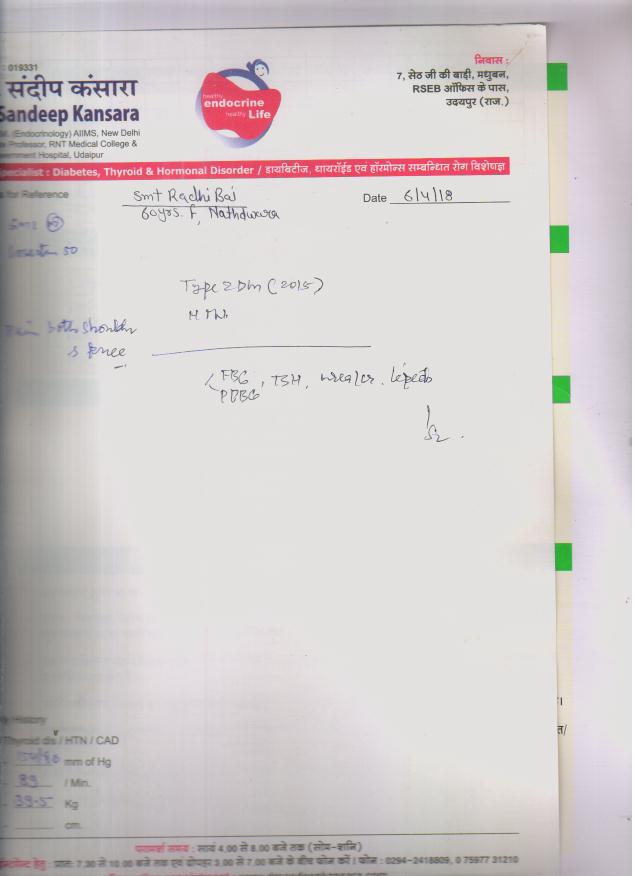 : 019331
संदीप कंसारा
Sandeep Kansara
M. (Endocrinology) AIIMS, New Delhi
Professor, RNT Medical College &
ernment Hospital, Udaipur
healthy
endocrine
healthy Life
निवास :
7, सेठ जी की बाड़ी, मधुबन,
RSEB ऑफिस के पास,
उदयपुर (राज.)
pecialist : Diabetes, Thyroid & Hormonal Disorder / डायबिटीज, थायरॉईड एवं हॉरमोन्स सम्बन्धित रोग विशेषज्ञ
for Reference
Smt Radhi Bai
60yrs. F, Nathdwara
Date 6/4/18
50
Type 2 Dm (2015)
Pain both
FBG, TSH, urea/cr, lipids
PPBG
History
Thyroid dis / HTN / CAD
mm of Hg
89 / Min.
39.5 Kg
cm.
परामर्श समय : सायं 4.00 से 8.00 बजे तक (सोम-शनि)
हेतु : प्रातः 7.30 से 10.00 बजे तक एवं दोपहर 3.00 से 7.00 बजे के बीच फोन करें। फोन : 0294-2418809, 0 75977 31210